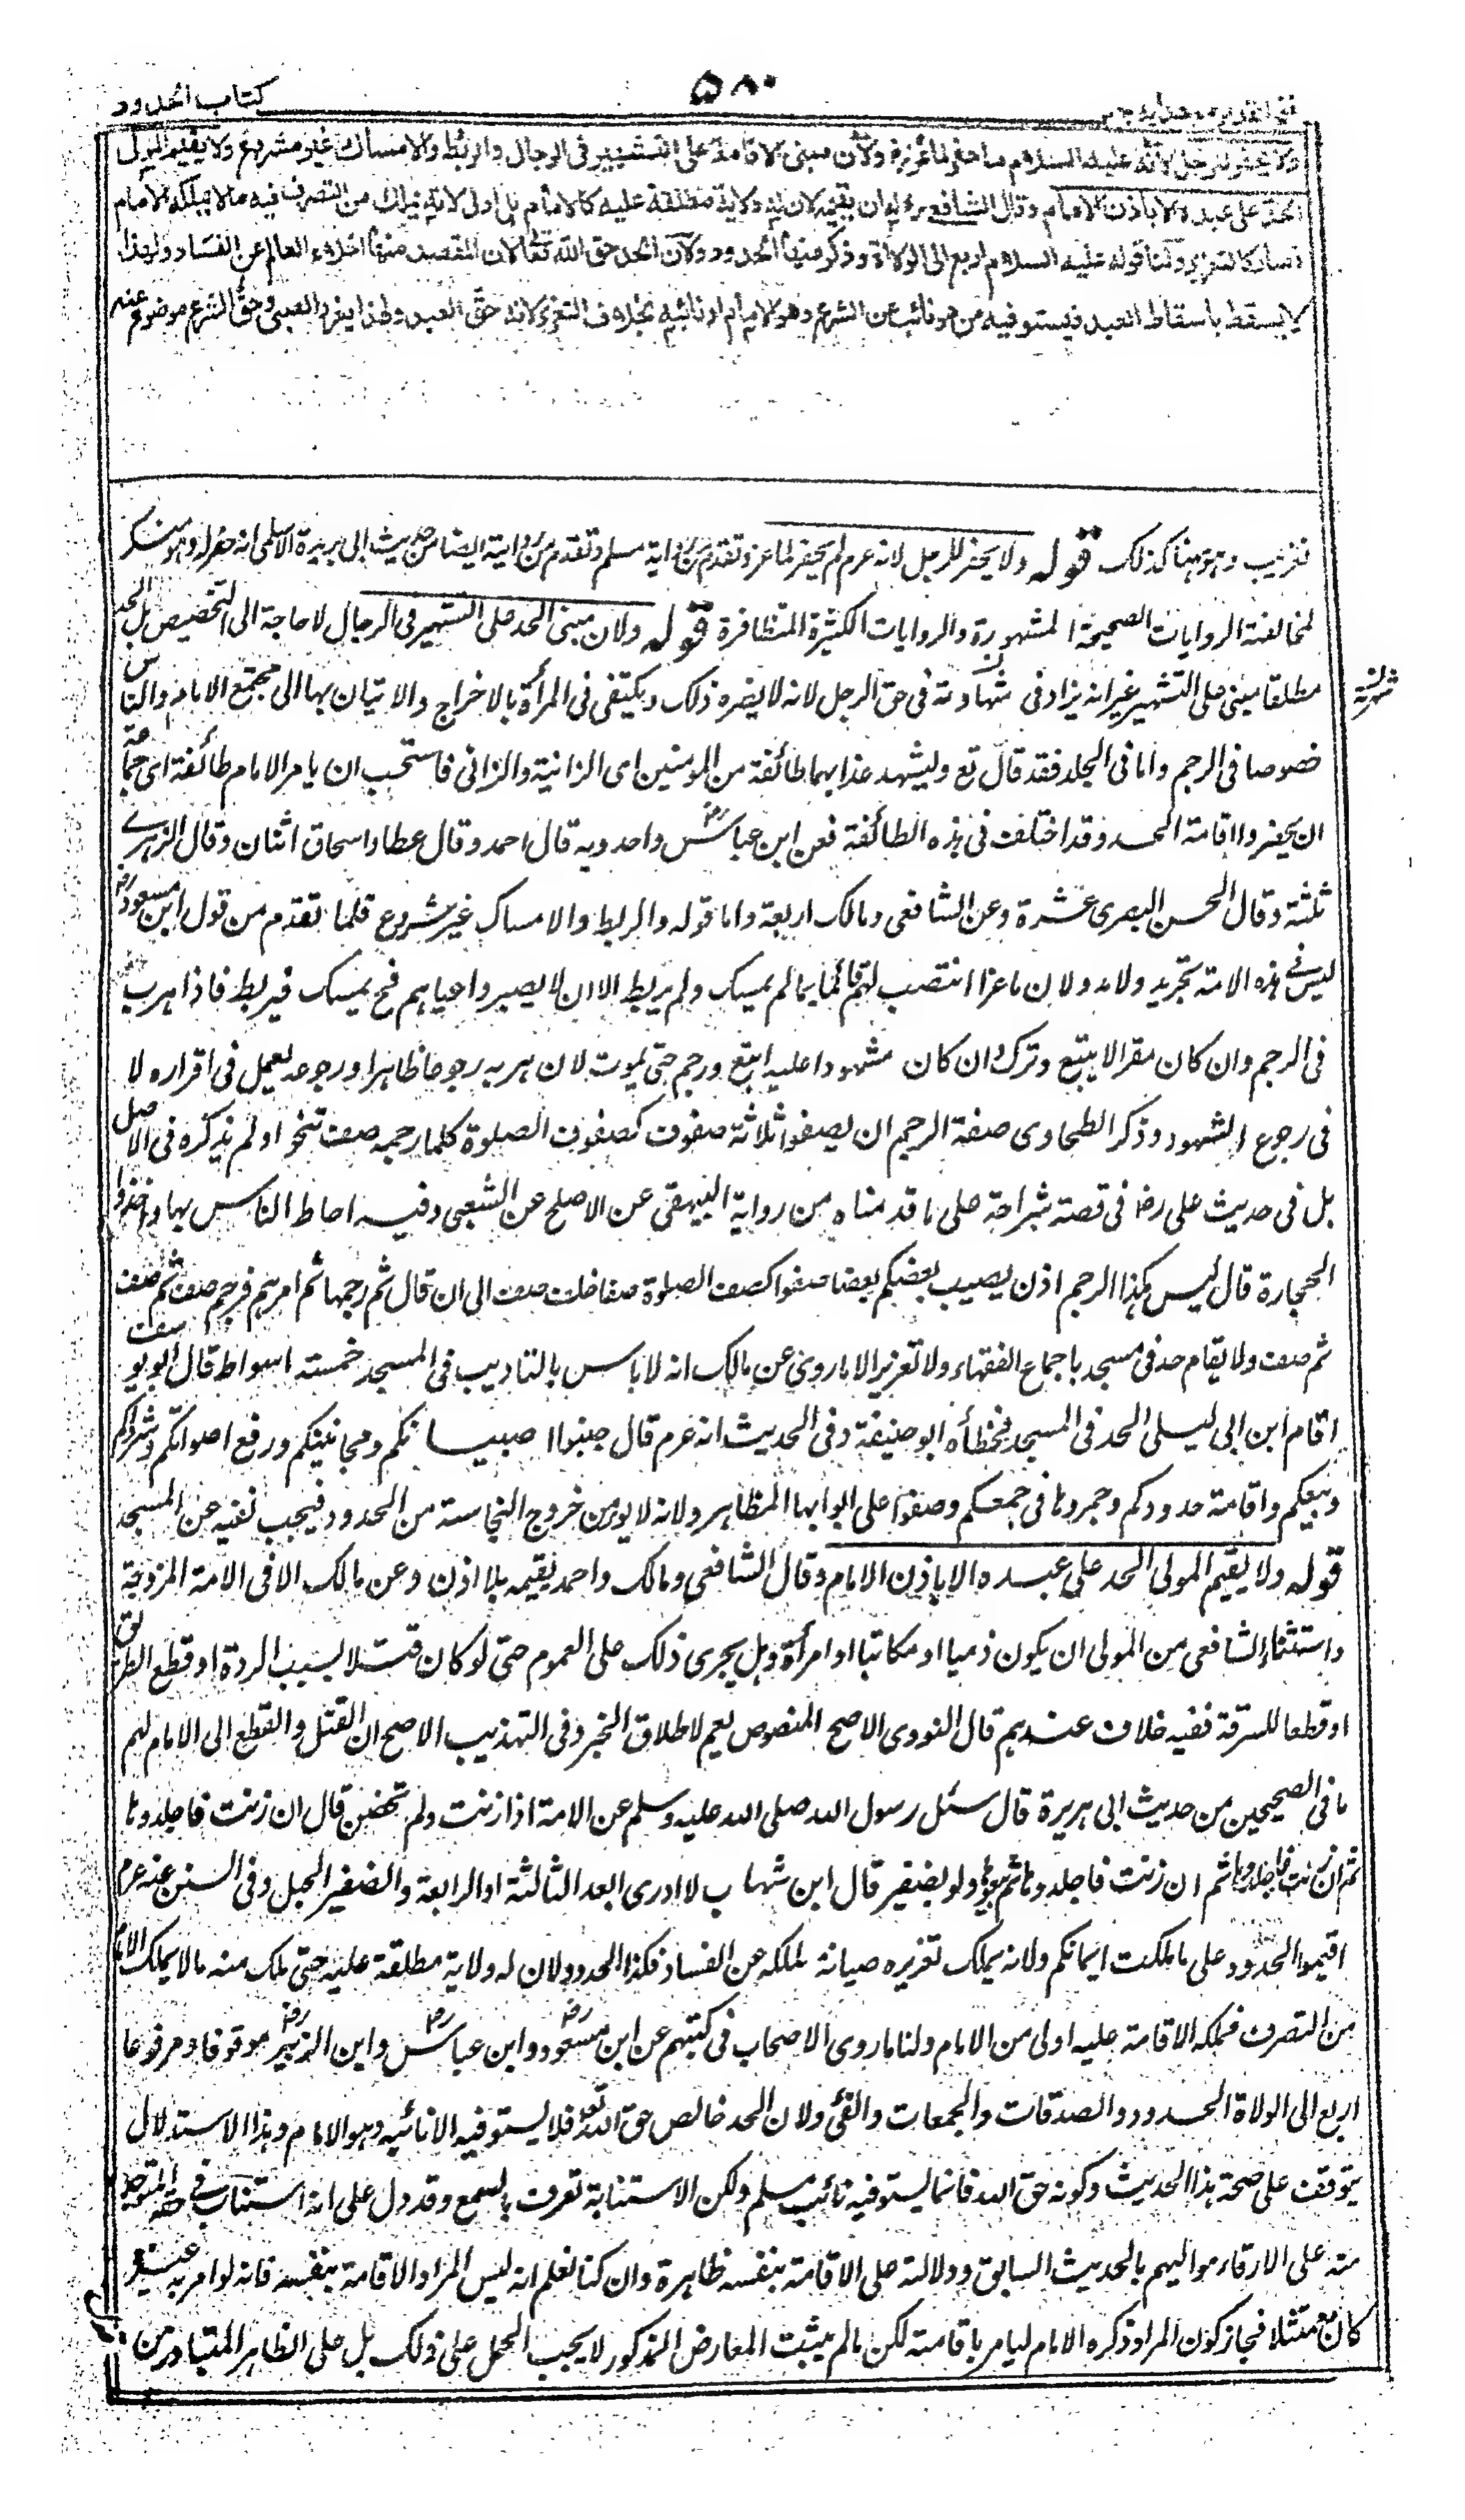 كتاب الحدود
٥٨٠
فتح القدير مع هدايه ج
ولا يحفر للرجل لانه عليه السلام ما حفر لماعز ولان مبنى الاقامة على التشهير فى الرجال والربط والامساك غير مشروع ولا يقيم المولى
الحد على عبده الا باذن الامام وقال الشافعى له ان يقيمه لان له ولاية مطلقة عليه كالامام بل اولى لانه يملك من التصرف فيه مالا يملكه الامام
فصار كالتعزير ولنا قوله عليه السلام اربع الى الولاة وذكر منها الحدود ولان الحد حق الله تعالى لان المقصد منها اخلاء العالم عن الفساد ولهذا
لا يسقط باسقاط العبد فيستوفيه من هو نائب عن الشرع وهو الامام او نائبه بخلاف التعزير لانه حق العبد ولهذا يعزر الصبى وحق الشرع موضوع عنه
تغريب وهو هنا كذلك قوله ولا يحفر للرجل لانه عم لم يحفر لماعز وتقدم من رواية مسلم وتقدم من رواية ايضا من حديث ابى بريدة الاسلمى انه حفر له وهو منكر
لمخالفته الروايات الصحيحة المشهورة والروايات الكثيرة المتظافرة قوله ولان مبنى الحد على التشهير فى الرجال لا حاجة الى التخصيص بل الحد
مطلقا مبنى على التشهير غير انه يزاد فى شهرته فى حق الرجل لانه لا يضره ذلك ويكتفى فى المرأة بالاخراج والاتيان بها الى مجتمع الامام والناس
خصوصا فى الرجم واما فى الجلد فقد قال تع وليشهد عذابهما طائفة من المومنين اى الزانية والزانى فاستحب ان يامر الامام طائفة اى جماعة
ان يحضروا اقامة الحد وقد اختلف فى هذه الطائفة فعن ابن عباس رض واحد وبه قال احمد وقال عطا واسحاق اثنان وقال الزهرے
ثلثة وقال الحسن البصرى عشرة وعن الشافعى ومالك اربعة واما قوله والربط والامساك غير مشروع فلما تقدم من قول ابن مسعود رض
ليس فے هذه الامة تجريد ولا مد ولان ماعزا انتصب لهم قائما لم يمسك ولم يربط الا ان لا يصبر واعياهم فح يمسك فيربط فاذا هرب
فى الرجم وان كان مقرا لا يتبع وترك وان كان مشهودا عليه اتبع ورجم حتى يموت لان هربه رجوعا ظاهرا ورجوعه يعمل فى اقراره لا
فى رجوع الشهود وذكر الطحاوى صفة الرجم ان يصفوا ثلاثة صفوف كصفوف الصلوة كلما رجمه صف تنحوا ولم يذكره فى الاصل
بل فى حديث على رض فى قصة شراحة على ما قدمناه من رواية البيهقى عن الاصلح عن الشعبى وفيه احاط الناس بها واخذوا
الحجارة قال ليس هكذا الرجم اذن يصيب بعضكم بعضا صفوا كصف الصلوة صفا خلف صف الى ان قال ثم رجمها ثم امرهم فرجم صف ثم صف
ثم صف ولا يقام حد فى مسجد باجماع الفقهاء ولا تعزير الا ما روى عن مالك انه لا باس بالتاديب فى المسجد خمسة اسواط قال ابو يوسف
اقام ابن ابى ليلى الحد فى المسجد فخطأه ابو حنيفة وفى الحديث انه عم قال جنبوا صبيانكم ومجانينكم ورفع اصواتكم وشراءكم
وبيعكم واقامة حدودكم وجمروها فى جمعكم وضعوا على ابوابها المطاهر ولانه لا يومن خروج النجاسة من الحدود فيجب نفيه عن المسجد
قوله ولا يقيم المولى الحد على عبده الا باذن الامام وقال الشافعى ومالك واحمد يقيمه بلا اذن وعن مالك الا فى الامة المزوجة
واستثناء الشافعى من المولى ان يكون ذميا او مكاتبا او امرأة وهل يجرى ذلك على العموم حتى لو كان قتلا بسبب الردة او قطع الطريق
او قطعا للسرقة ففيه خلاف عندهم قال النووى الاصح المنصوص نعم لاطلاق الخبر وفى التهذيب الاصح ان القتل والقطع الى الامام لهم
ما فى الصحيحين من حديث ابى هريرة قال سئل رسول الله صلى الله عليه وسلم عن الامة اذا زنت ولم تحصن قال ان زنت فاجلدوها
ثم ان زنت فاجلدوها ثم ان زنت فاجلدوها ثم بيعوها ولو بضفير قال ابن شهاب لا ادرى ابعد الثالثة او الرابعة والضفير الحبل وفى السنن عنه عم
اقيموا الحدود على ما ملكت ايمانكم ولانه يملك تعزيره صيانة لملكه عن الفساد فكذا الحدود ولان له ولاية مطلقة عليه حتى ملك منه مالا يملك الامام
من التصرف فملكه الاقامة عليه اولى من الامام ولنا ما روى الاصحاب فى كتبهم عن ابن مسعود رض وابن عباس رض وابن الزبير رض موقوفا ومرفوعا
اربع الى الولاة الحدود والصدقات والجمعات والفئ ولان الحد خالص حق الله تع فلا يستوفيه الا نائبه وهو الامام وهذا الاستدلال
يتوقف على صحة هذا الحديث وكونه حق الله فانما يستوفيه نائبه مسلم ولكن الاستنابة تعرف بالسمع وقد دل على انه استناب فى حقه المتوجه
منه على الارقاء مواليهم بالحديث السابق ودلالته على الاقامة بنفسه ظاهرة وان كنا نعلم انه ليس المراد الاقامة بنفسه فانه لو امر به غيره
كان ممتثلا فجاز كون المراد ذكره الامام ليامر باقامته لكن مالم يثبت المعارض المذكور لا يجب الحمل على ذلك بل على الظاهر المتبادر من